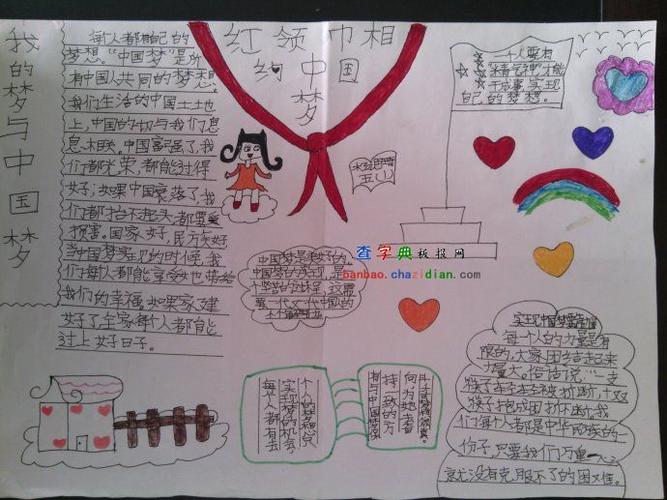 我的梦与中国梦
每个人都有自己的
梦想。"中国梦"是所
有中国人共同的梦想,
我们生活的中国土土也
上,中国的一切与我们息
息相联。中国富强了,我
们都光荣,都能过得
好;如果中国衰落了,我
们都抬不起头,都要受
损害。国家好,民族好
当中国梦实现的时候,我
们每个人都能享受
我们的幸福,如果家建
好了全家每个人都能
过上好日子。
红领巾相
约中国
梦
一个人要有
才能
干成事,实现
自己的梦想。
五(1)
查字典板报网
banbao.chazidian.com
中国梦是美好的,
中国梦的实现,是
一代又一代中国人的
个人的梦想只
实现梦的机会
每个人都有去
向
持一致的方
有与中国梦保
实现中国梦
每个人的力量是有
限的,大家团结起来
力量大,俗话说:"一支
筷子轻轻被折断,十双
筷子抱成团折不断,我
们每个人都是中华民族的一
份子,只要我们万众一心
就没有克服不了的困难。